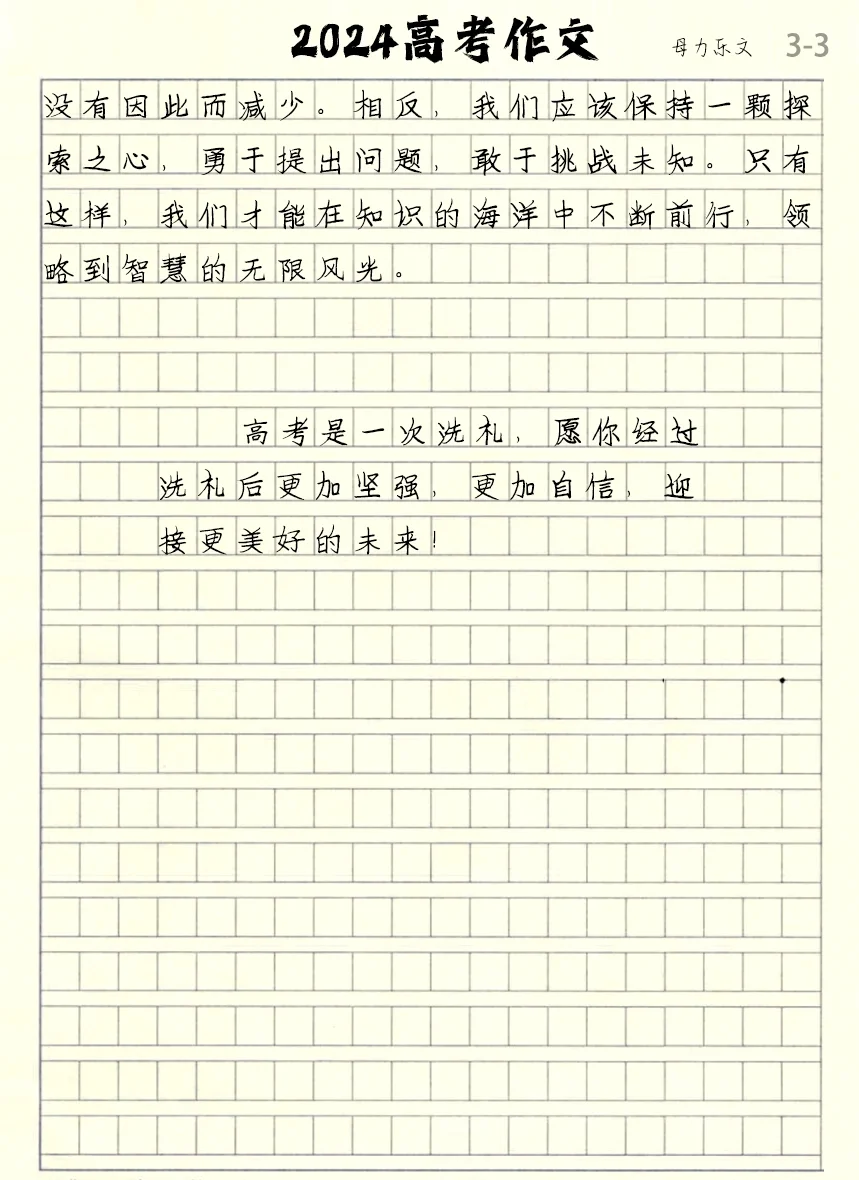 2024高考作文
母力乐文 3-3
没有因此而减少。相反，我们应该保持一颗探
索之心，勇于提出问题，敢于挑战未知。只有
这样，我们才能在知识的海洋中不断前行，领
略到智慧的无限风光。
高考是一次洗礼，愿你经过
洗礼后更加坚强，更加自信，迎
接更美好的未来！